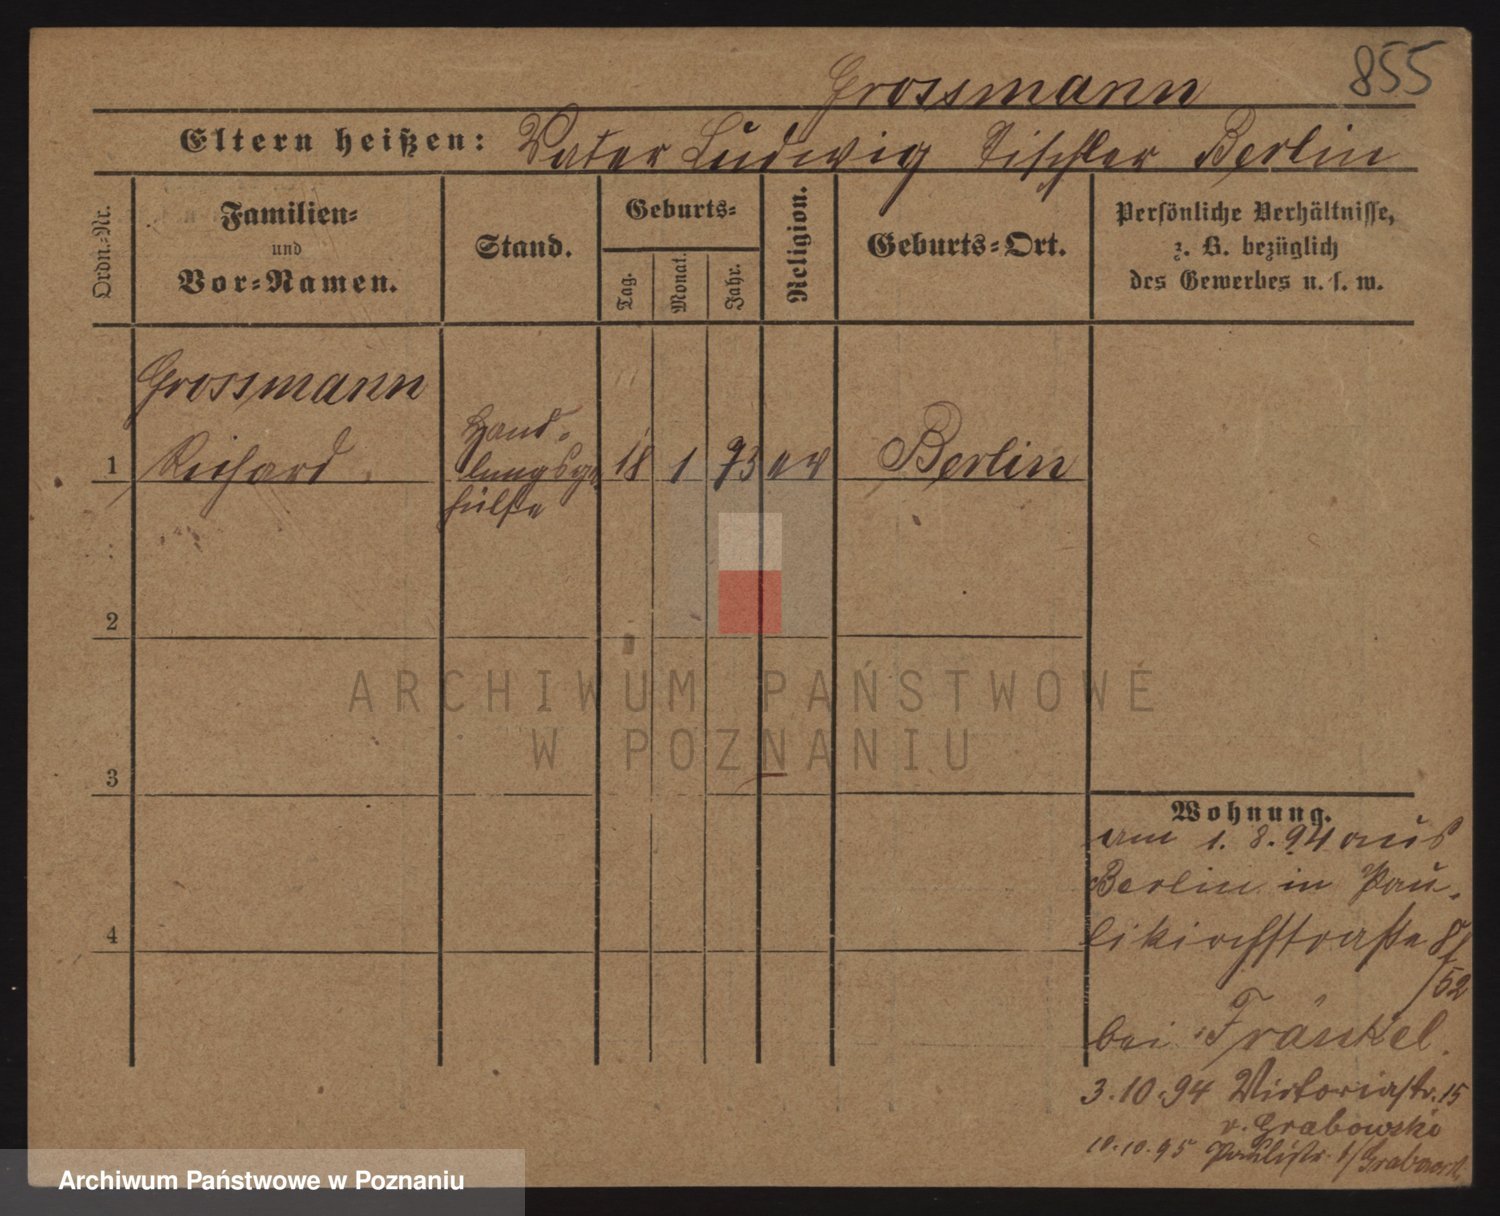 855
Grossmann
Eltern heißen: Vater Ludwig Tischler Berlin
Ordn.-Nr.
Familien-
und
Vor-Namen.
Stand.
Geburts-
Tag.
Monat.
Jahr.
Religion.
Geburts-Ort.
Persönliche Verhältnisse,
z. B. bezüglich
des Gewerbes u. s. w.
Grossmann
1 Richard
Hand-
lungsge
hülfe
18 1 73 ev Berlin
2
3
4
Wohnung.
am 1. 8. 94 aus
Berlin in Pau-
likirchstraße 8
/52
bei Fränkel.
3.10.94 Victoriastr. 15
v. Grabowski
10.10.95 Paulistr. b/Grabowsk
ARCHIWUM PAŃSTWOWE
W POZNANIU
Archiwum Państwowe w Poznaniu